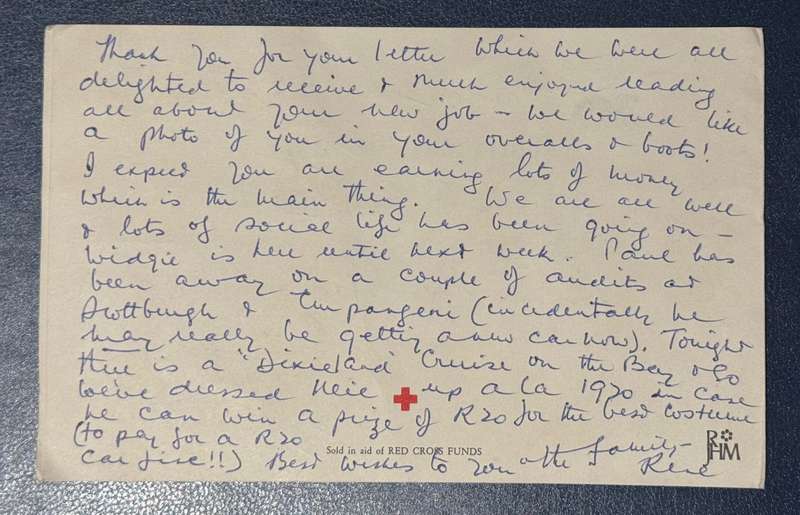 Thank you for your letter which we were all
delighted to receive & much enjoyed reading
all about your new job - we would like
a photo of you in your overalls & boots!
I expect you are earning lots of money
which is the main thing. We are all well
& lots of social life has been going on -
Widgie is here until next week. Paul has
been away on a couple of audits at
Scottburgh & Empangeni (incidentally he
may really be getting a new car now). Tonight
there is a "Dixieland" Cruise on the Bay & so
we've dressed up a la 1920 in case
he can win a prize of R20 for the best costume
(to pay for a R20
car fine!!) Best wishes to you & the family -
Sold in aid of RED CROSS FUNDS
RHM